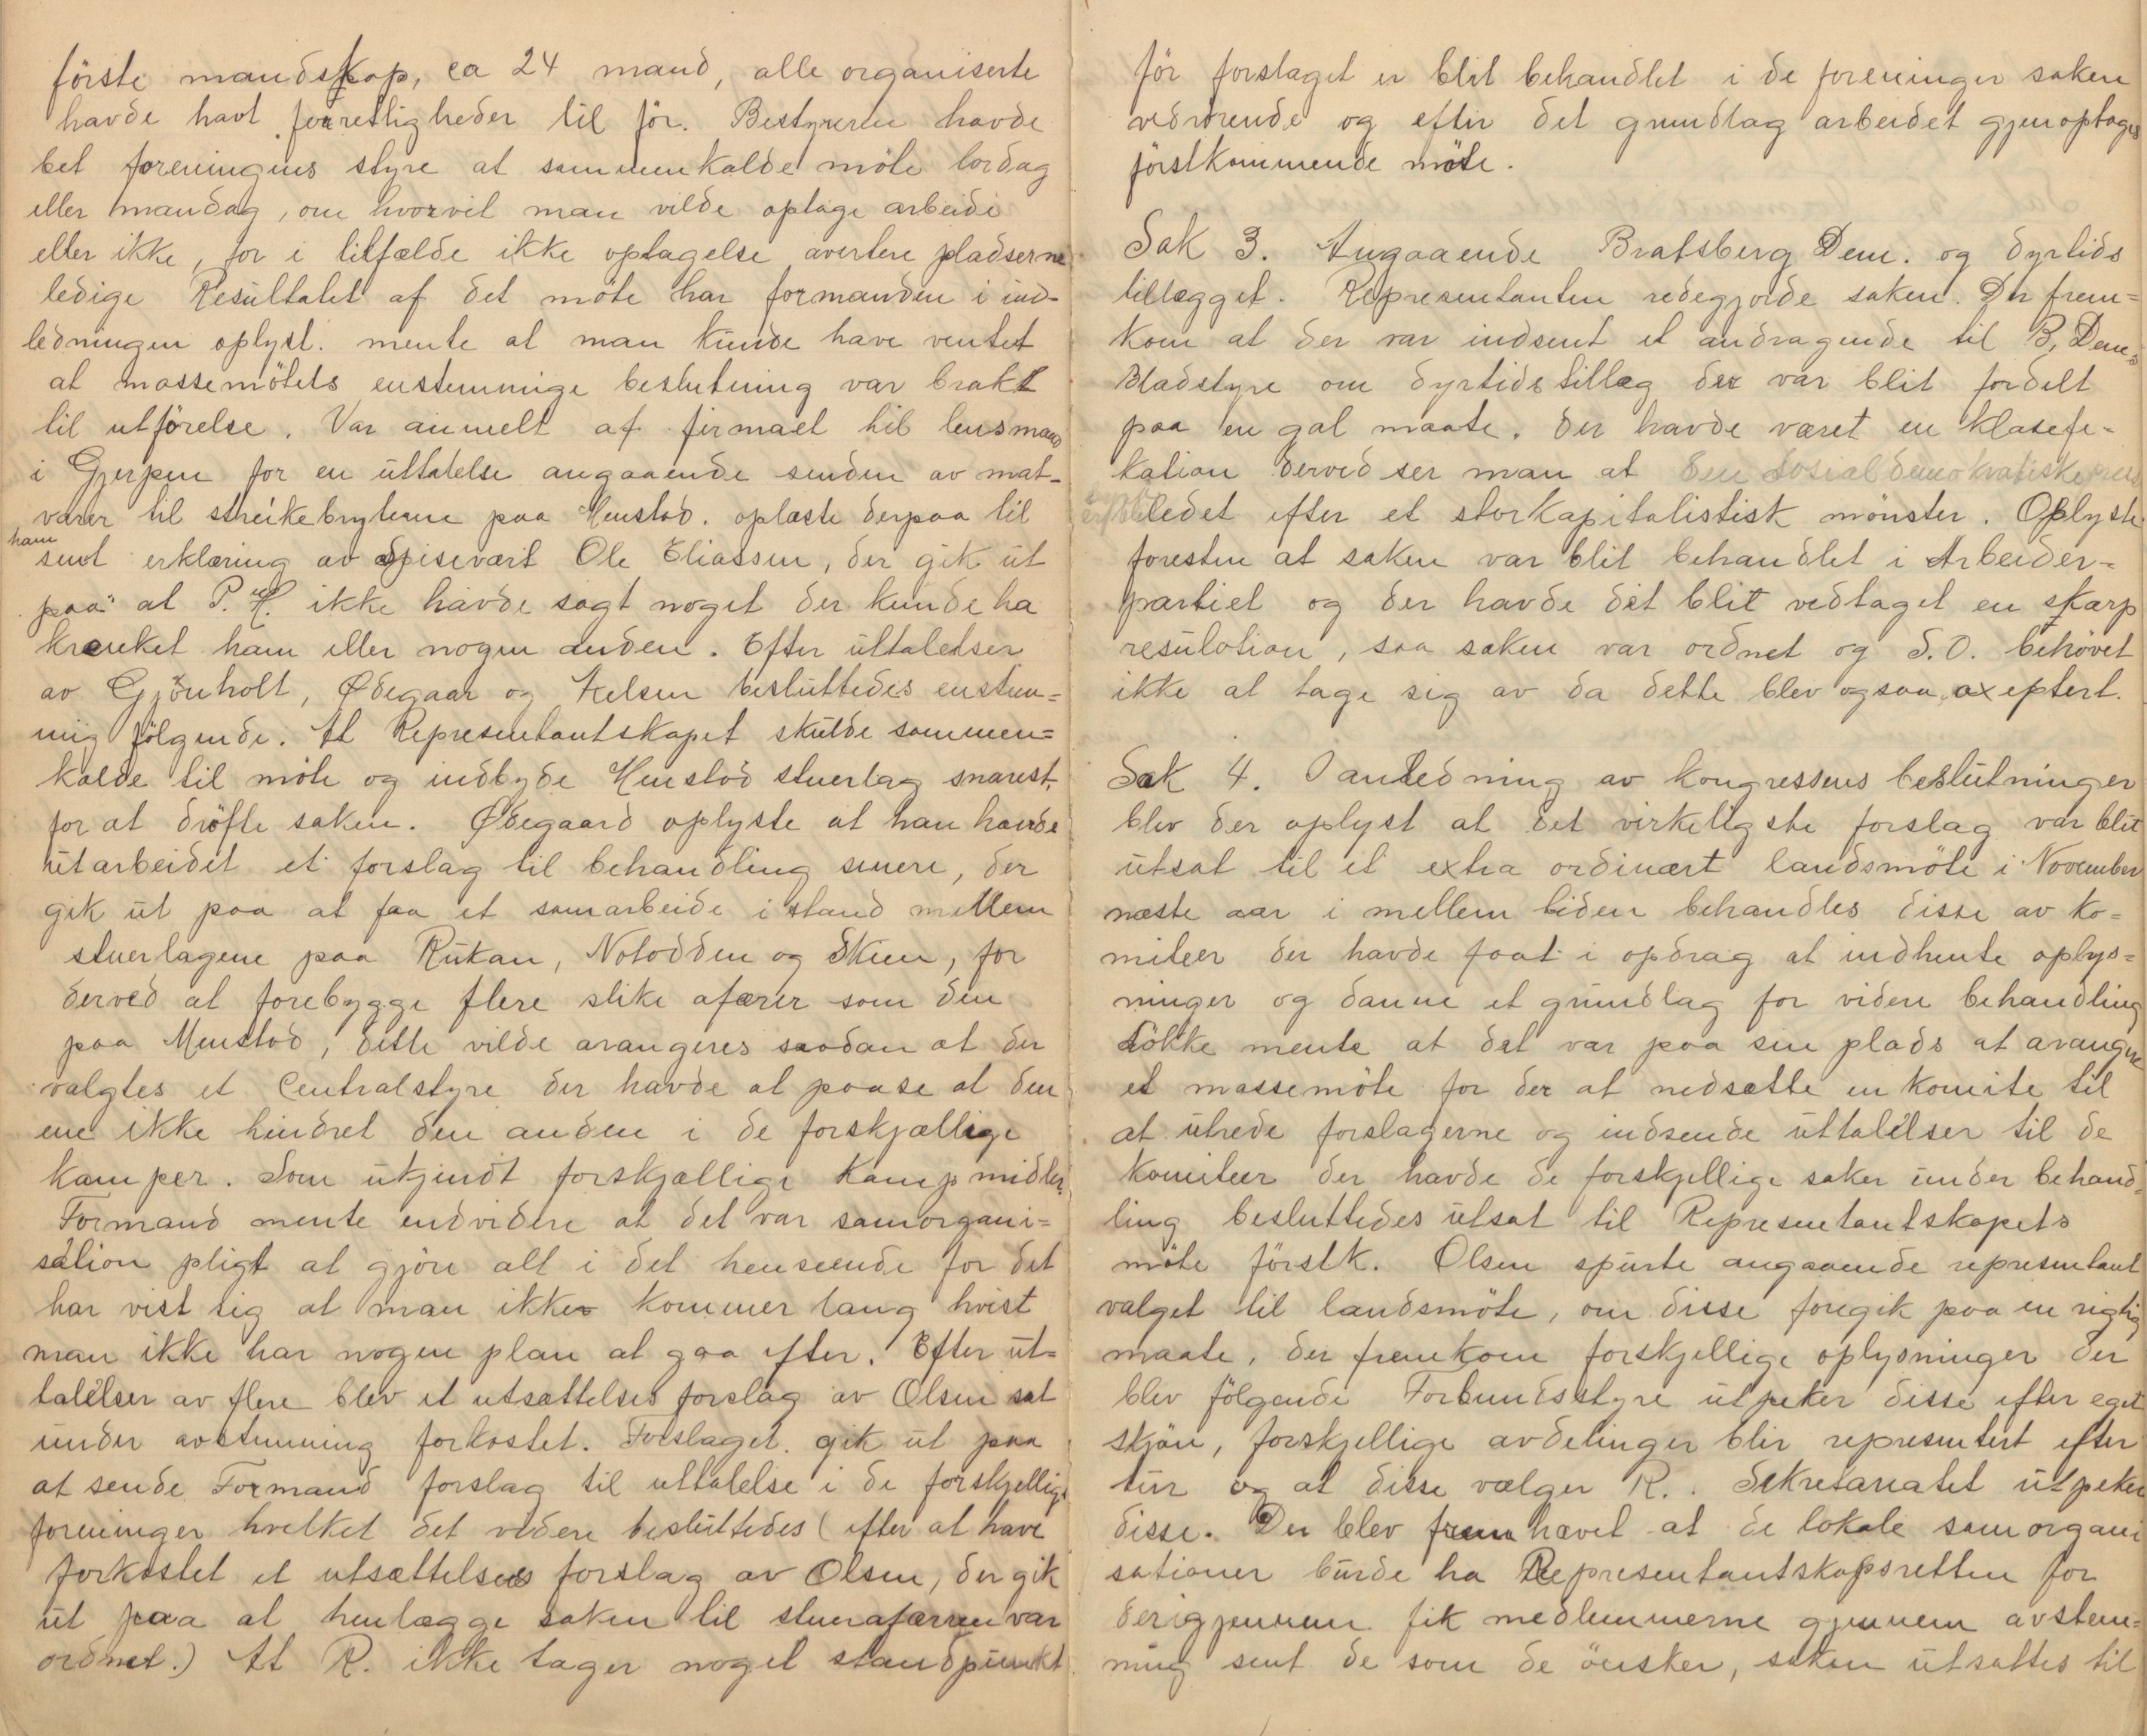 förste mandskap, ca 24 mand, alle organiserte
havde havt forretligheder til för. Bestyreren havde
bet foreningens styre at sammenkalde möte lördag
eller mandag, om hvorvit man vilde optage arbeide
eller ikke, for i tilfælde ikke optagelse avertere pladserne
ledige Resultatet af det möte har formanden i ind-
ledningen oplyst. mente at man kunde have ventet
at massemötets enstemmige beslutning var brakt
til utförelse. Var anmelt af firmaet til lensmand
i Gjerpen for en uttalelse angaaende senden av mat-
varer til streikebryterne paa Menstad. oplæste derpaa til
ham
sent erklæring av spisevært Ole Eliassen, der gik ut
paa at P. H. ikke havde sagt noget der kunde ha
krænket ham eller nogen anden. Efter uttalelser
av Gjönholt, Ødegaar og Kelsen besluttedes enstem=
mig fölgende. At Representantskapet skulde sammen=
kalde til möte og indbyde Menstad stuerlag snarest,
for at dröfte saken. Ødegaard oplyste at han havde
utarbeidet et forslag til behandling senere, der
gik ut paa at faa et samarbeide i stand mellem
stuerlagene paa Rukan, Notodden og Skien, for
derved at forebygge flere slike afærer som den
paa Menstad, dette vilde arangeres saadan at der
valgtes et Centralstyre der havde at paase at den
ene ikke hindret den anden i de forskjællige
kamper. Som utjindt forskjællige kampmidler.
Formand mente endvidere at det var samorgani=
sation pligt at gjöre alt i det henseende for det
har vist sig at man ikke kommer lang hvist
man ikke har nogen plan at gaa efter. Efter ut=
talelser av flere blev et utsættelses forslag av Olsen sat
under avstemning forkastet. Forslaget. gik ut paa
at sende Formand forslag til uttalelse i de forskjellige
foreninger hvilket det videre besluttedes (efter at have
forkastet et utsættelses forslag av Olsen, der gik
ut paa at henlægge saken til stuerafærren var
ordnet.) At R. ikke tager noget standpunkt
för forslaget er blit behandlet i de foreninger saken
vedrörende og efter det grundlag arbeidet gjenoptages
förstkommende möte.
Sak 3. Angaaende Bratsberg Dem. og dyrtids
tillægget. Representanten redegjorde saken. Der frem=
kom at der var indsent et andragende til B. Dems
Bladstyre om dyrtidstillæg der var blit fordelt
paa en gal maate. der havde været en klasefe-
kation derved ser man at den sosialdemokratiske
ledet efter et storkapitalistisk mönster. Oplyste
foresten at saken var blit behandlet i Arbeider-
partiet og der havde det blit vedtaget en skarp
resulotion, saa saken var ordnet og S.O. behövet
ikke at tage sig av da dette blev ogsaa axeptert.
Sak 4. I anledning av kongressens beslutninger
blev der oplyst at det virkeligste forslag var blit
utsat til et extra ordinært landsmöte i November
næste aar i mellem tiden behandles disse av ko=
miteer der havde faat i opdrag at indhente oplys=
ninger og danne et grundlag for videre behandling
Lökke mente at det var paa sin plads at arangere
et massemöte for der at nedsætte en komite til
at utrede forslagerne og indsende uttalelser til de
komiteer der havde de forskjellige saker under behand=
ling besluttedes utsat til Representantskapets
möte förstk. Olsen spurte angaaende representant
valget til landsmöte, om disse foregik paa en rigtig
maate, der fremkom forskjellige oplysninger der
blev fölgende Forbundsstyre utpeker disse efter eget
skjön, forskjellige avdelinger blir representert efter
tur og at disse vælger R.. Sekretariatet utpeker
disse. Der blev fremhævet at de lokale samorgani
sationer burde ha Representantskapsretten for
derigjennem fik medlemmerne gjennem avstem=
ning sent de som de önsker, saken utsattes til